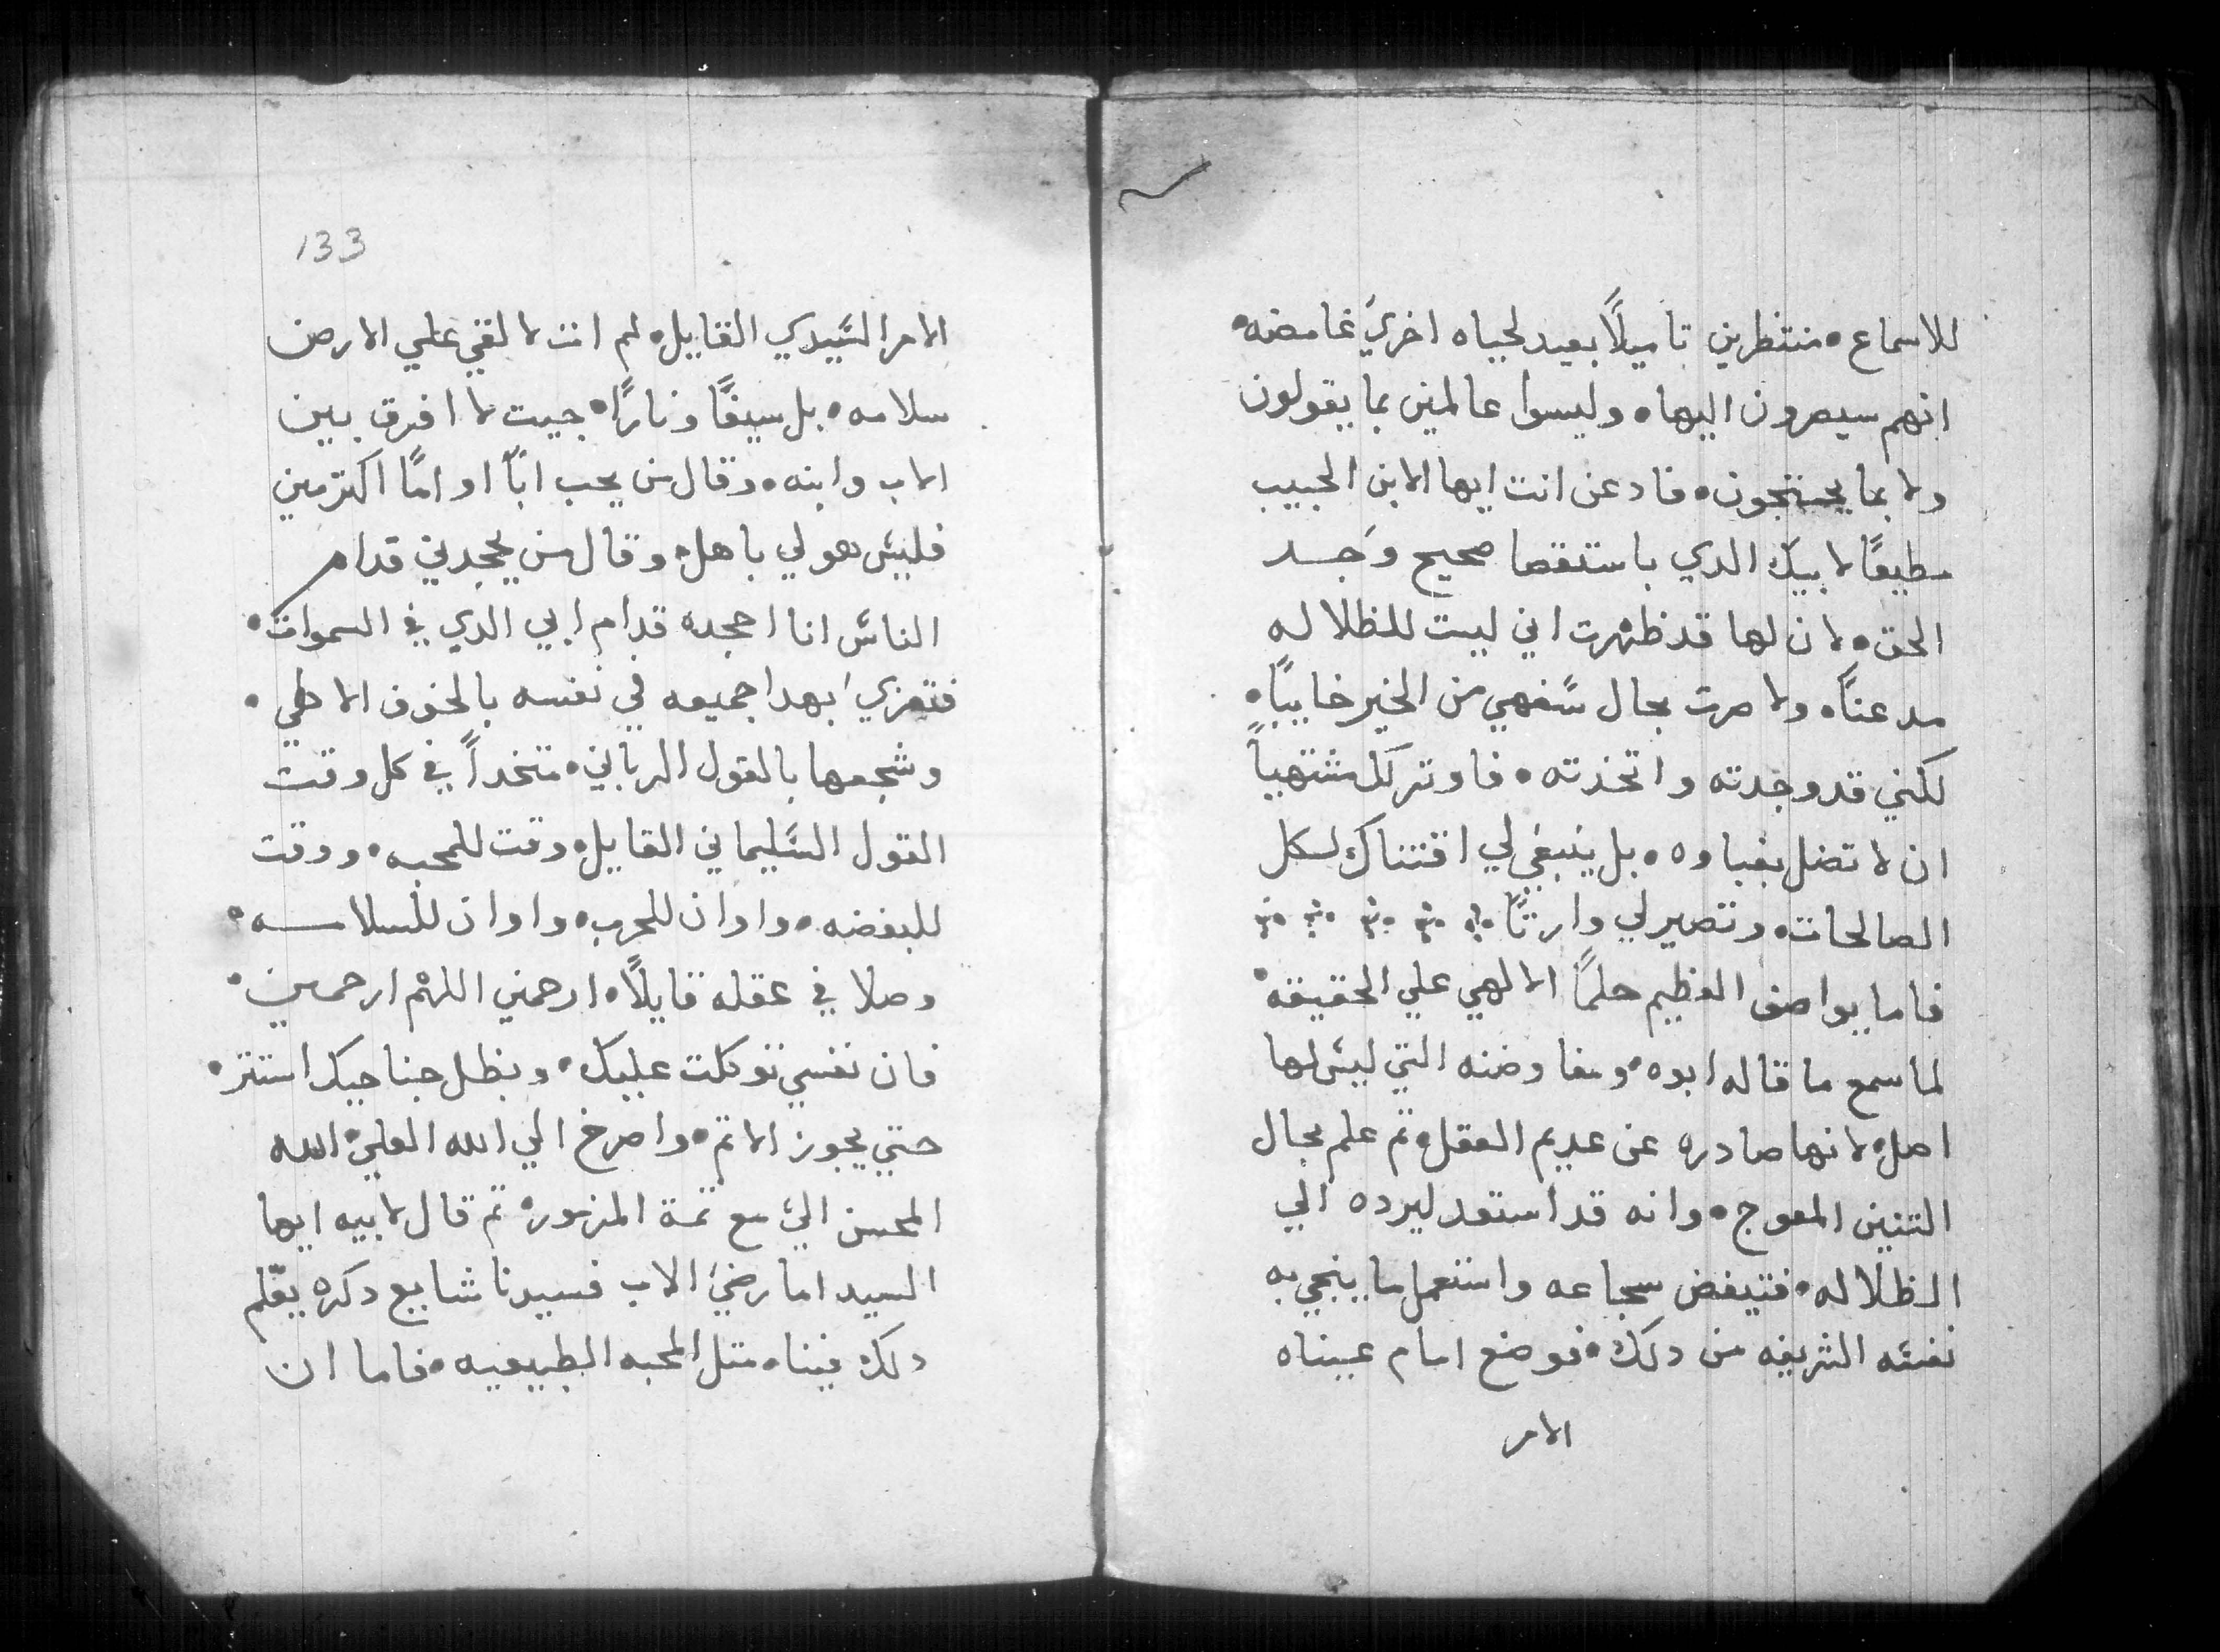 للاسماع • منتظرين تاميلًا بعيد لحياه اخريَ غامضه •
انهم سيصرون اليها • وليسوا عالمين بما يقولون
ولا بما يحتجون • فادعن انت ايها الابن الحبيب
مطيعًا لابيك الدي باستقصا صحيح وَجد
الحق • لان لها قد ظهرت اني لست للظلاله
مدعنًا • ولا صرت بحال سَفهي من الخير خايبًا •
لكني قد وجدته واتخدته • فاوترك مشتهياً
ان لا تضل بغباوه • بل ينبغي لي اقتناك لكل
الصالحات • وتصير لي وارتًا
فاما يواصف العظيم حلمًا الالهي علي الحقيقه •
لما سمع ما قاله ابوه • ومفاوضته التي ليس لها
اصل • لانها صادره عن عديم العقل • تم علم بحال
التنين المعوج • وانه قد استعد ليرده الي
الظلاله • فتيغض سجاعه واستعمل ما ينجي به
نفسَه الشريفه من دلك • فوضع امام عيناه
الامر
133
الامر السَيدي القايل • لم انت لالقي علي الارض
سلامه • بل سيفًا ونارًا • جيت لافرق بين
الاب وابنه • وقال من يحب ابًا او امًا اكتر مني
فليسَ هو لي باهل • وقال من يجحدني قدام
الناسَ انا اجحده قدام ابي الدي في السموات •
فتعزي بهدا جميعه في نفسه بالخوف الاهلي •
وشجعها بالقول الرباني • متخداً في كل وقت
القول السَليماني القايل • وقت للمحبه • ووقت
للبغضه • واوان للحرب • واوان للسلامه •
وصلا في عقله قايلًا • ارحمني اللهم ارحمني •
فان نفسي توكلت عليك • وبظل جناحيك استتر •
حتي يجوز الاتم • واصرخ الي الله العلي • الله
المحسن الي • مع تمة المزمور • تم قال لابيه ايها
السيد اما رضيَ الاب فسيدنا شايع دكره يعّلم
دلك فينا • متل المحبه الطبيعيه • فاما ان